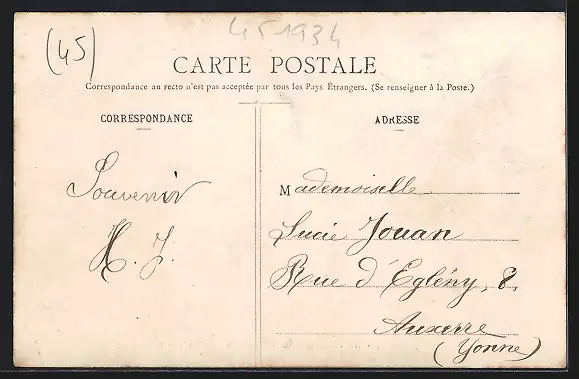 (45)
451934
CARTE POSTALE
Correspondance au recto n'est pas acceptée par tous les Pays Étrangers. (Se renseigner à la Poste.)
CORRESPONDANCE
Souvenir
H. J.
ADRESSE
Mademoiselle
Lucie Jouan
Rue d'Eglény, 8.
Auxerre
(Yonne)